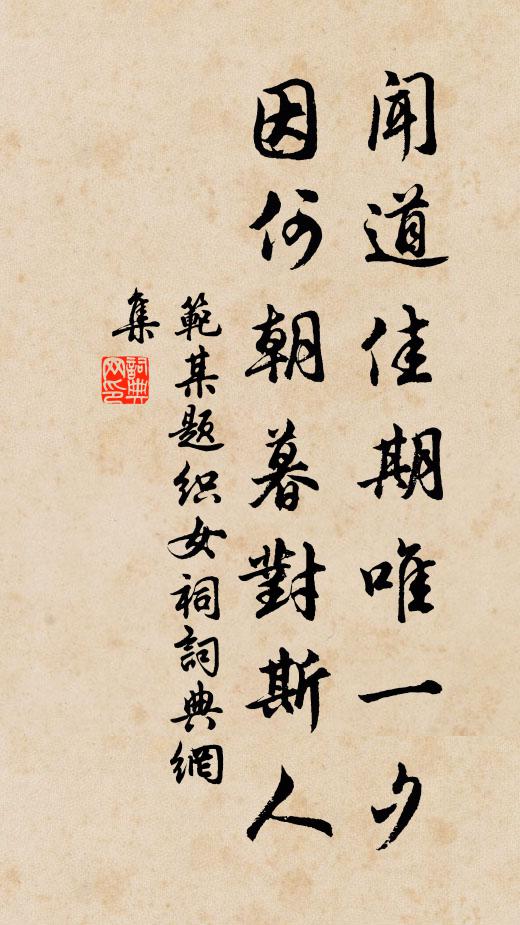 聞道佳期唯一夕
因何朝暮對斯人
範某題织女祠詞典網
集
詞典网印